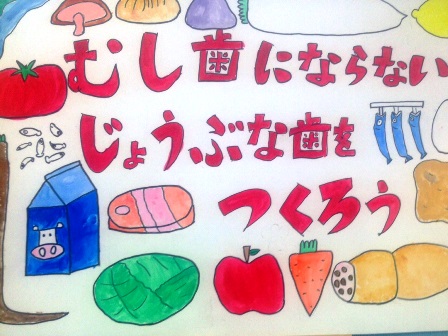 むし歯にならない
じょうぶな歯を
つくろう